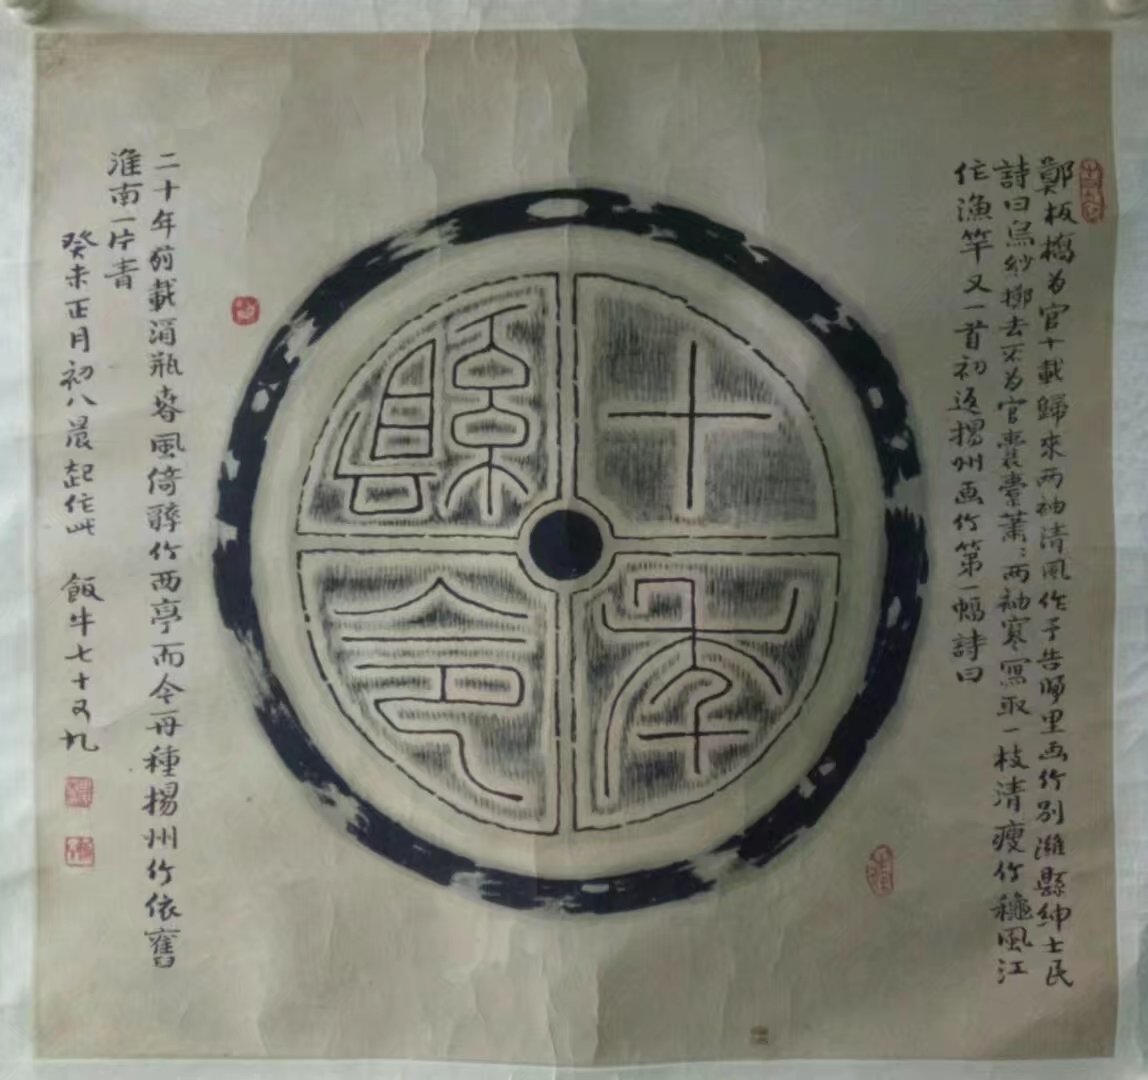 鄭板橋为官十載歸來两袖清風作予告歸里画竹別濰縣紳士民
詩曰烏紗擲去不为官囊橐蕭:两袖寒寫取一枝清瘦竹穐風江
作漁竿又一首初返揚州画竹第一幅詩曰
十年
縣令
二十年前載酒瓶春風倚醉竹西亭而今再種揚州竹依舊
淮南一片青
癸未正月初八晨起作此 飯牛七十又九